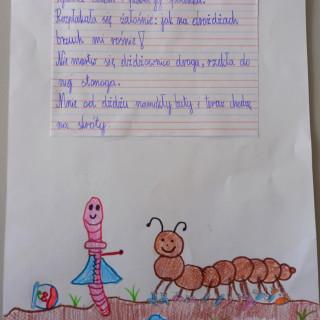 Rozpłakała się żałośnie: jak na drożdżach
brzuch mi rośnie!
Nie martw się dżdżownico droga, rzekła do
niej stonoga.
Mnie od dżdżu namokły buty i teraz chodzę
na skróty.